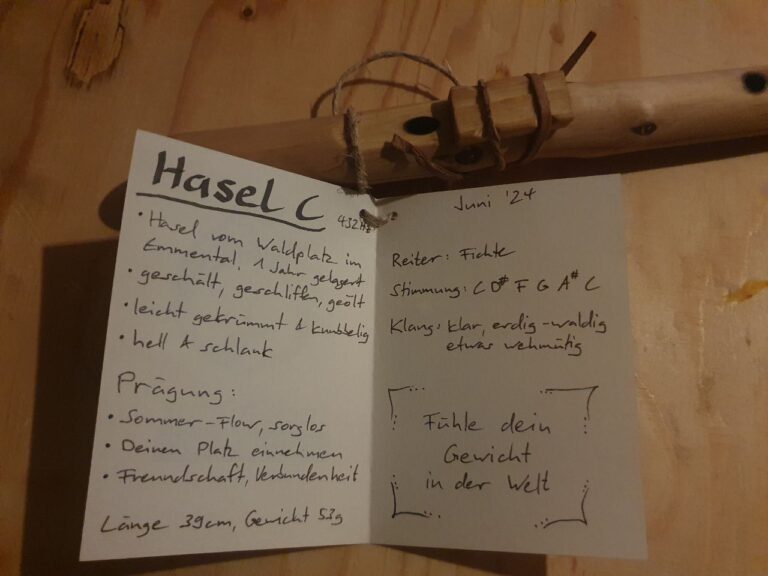 Hasel C 432Hz
• Hasel vom Waldplatz im
Emmental, 1 Jahr gelagert
• geschält, geschliffen, geölt
• leicht gekrümmt & knubbelig
• hell & schlank
Prägung:
• Sommer-Flow, sorglos
• Deinen Platz einnehmen
• Freundschaft, Verbundenheit
Länge 39cm, Gewicht 53g
Juni '24
Reiter: Fichte
Stimmung: C D# F G A# C
Klang: klar, erdig-waldig
etwas wehmütig
Fühle dein
Gewicht
in der Welt